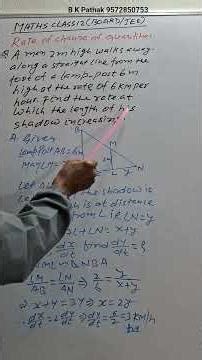 B K Pathak 9572850753
MATHS CLASS 12 (BOARD/JEE)
Rate of change of question
Q. A man 2m high walks away
along a straight line from the
foot of a lamp-post 6m
high at the rate of 6km per
hour. Find the rate at
which the length of his
shadow increasing.
A. Given
B
lamp post AB = 6m
M
man LM =
2m
A
L
N
Let the shadow is
is at distance
from L i.e. LN = y
AL + LN = x+y
dx/dt find dy/dt = ?
△NBA
LM/AB = LN/AN ⇒ 2/6 = y/x+y
⇒ x+y = 3y ⇒ x = 2y
dx/dt = 2 dy/dt ⇒ = 3km/h